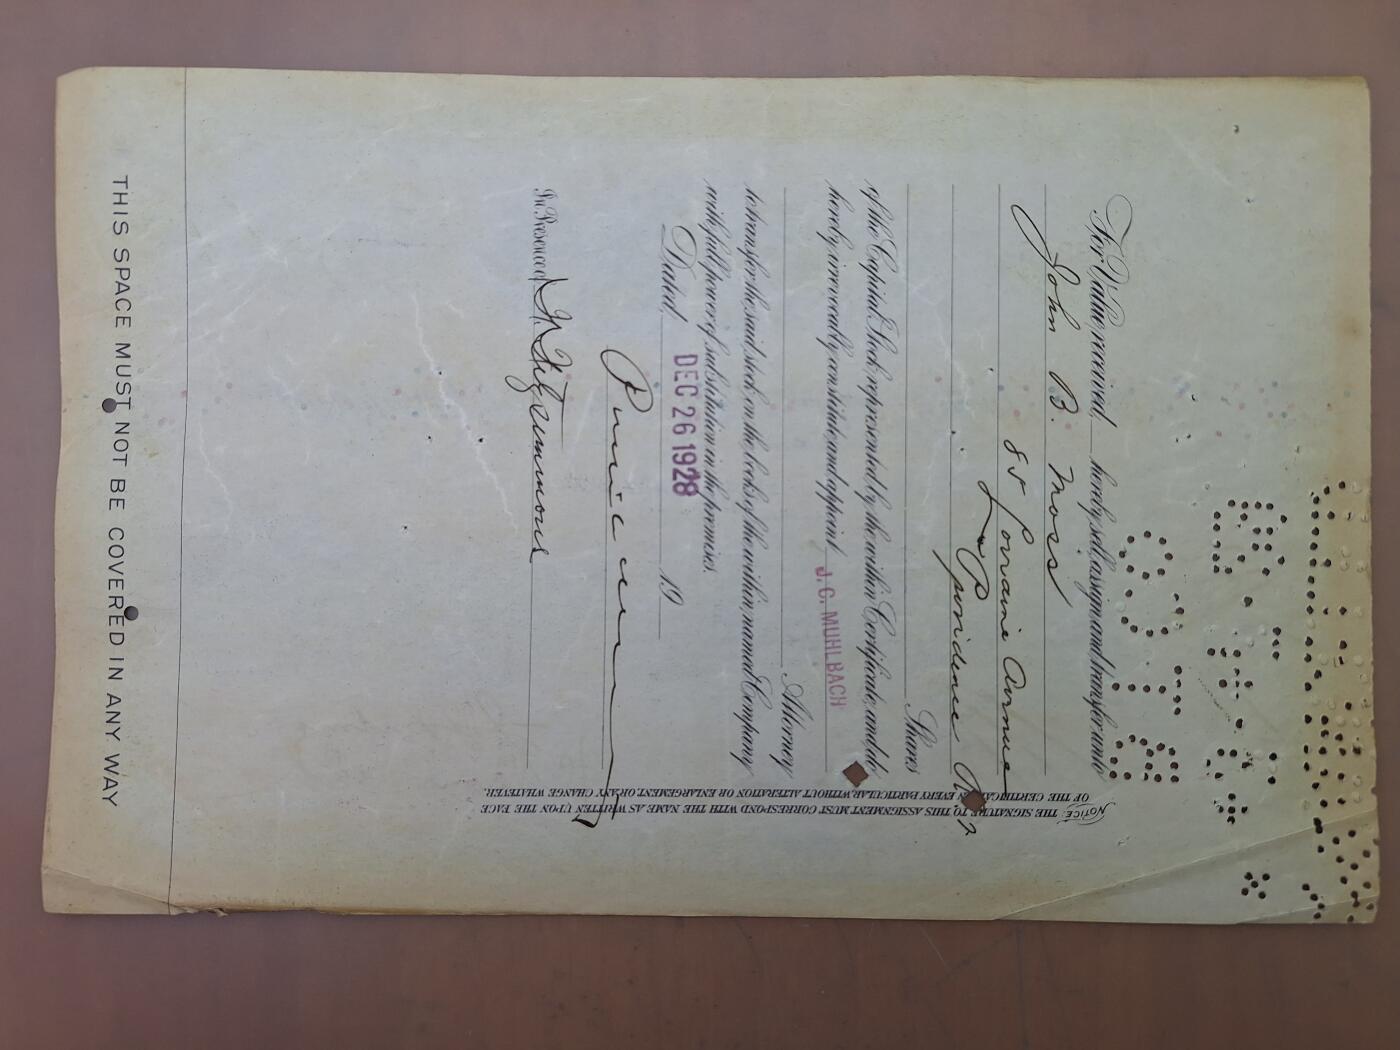 For Value received, hereby sell, assign and transfer unto
John B. Moss
85 Lorraine Avenue
Providence R.I.
Shares
of the Capital Stock represented by the within Certificate, and do
hereby irrevocably constitute and appoint J. C. MUHLBACH
Attorney
to transfer the said stock on the books of the within named Company
with full power of substitution in the premises.
Dated, DEC 26 1928 19
In Presence of Fitzsimmons
NOTICE: THE SIGNATURE TO THIS ASSIGNMENT MUST CORRESPOND WITH THE NAME AS WRITTEN UPON THE FACE
OF THE CERTIFICATE IN EVERY PARTICULAR, WITHOUT ALTERATION OR ENLARGEMENT, OR ANY CHANGE WHATEVER.
THIS SPACE MUST NOT BE COVERED IN ANY WAY